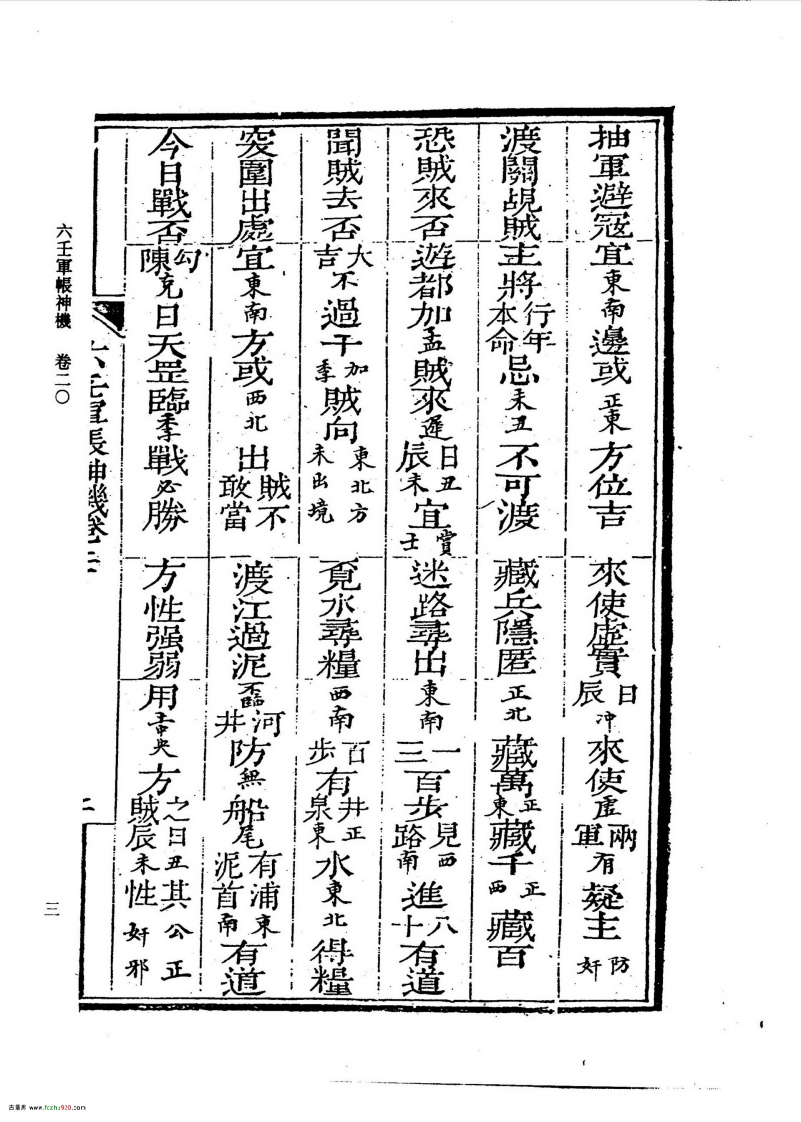 抽軍避冦宜東南邊或正東方位吉
來使虛實日辰冲來使虛兩軍有疑主防奸
渡關覘賊主將行年本命忌未丑不可渡
藏兵隱匿正北藏萬正東藏千正西藏百
恐賊來否遊都加孟賊來遲日丑辰未宜賞士
迷路尋出東南一三百步見西路南進八十有道
聞賊去否大吉不過干加季賊向東北方未出境
覔水尋糧西南百步有井正泉東水東北得糧
突圍出處宜東南方或西北出賊不敢當
渡江過泥不臨河井防無船尾有浦東泥首南有道
今日戰否勾陳克日天罡臨季戰必勝
方性强弱用中央方之日丑賊辰未其公正性奸邪
六壬軍帳神機卷二
二
六壬軍帳神機 卷二〇
三
古籍库 www.fozhu920.com